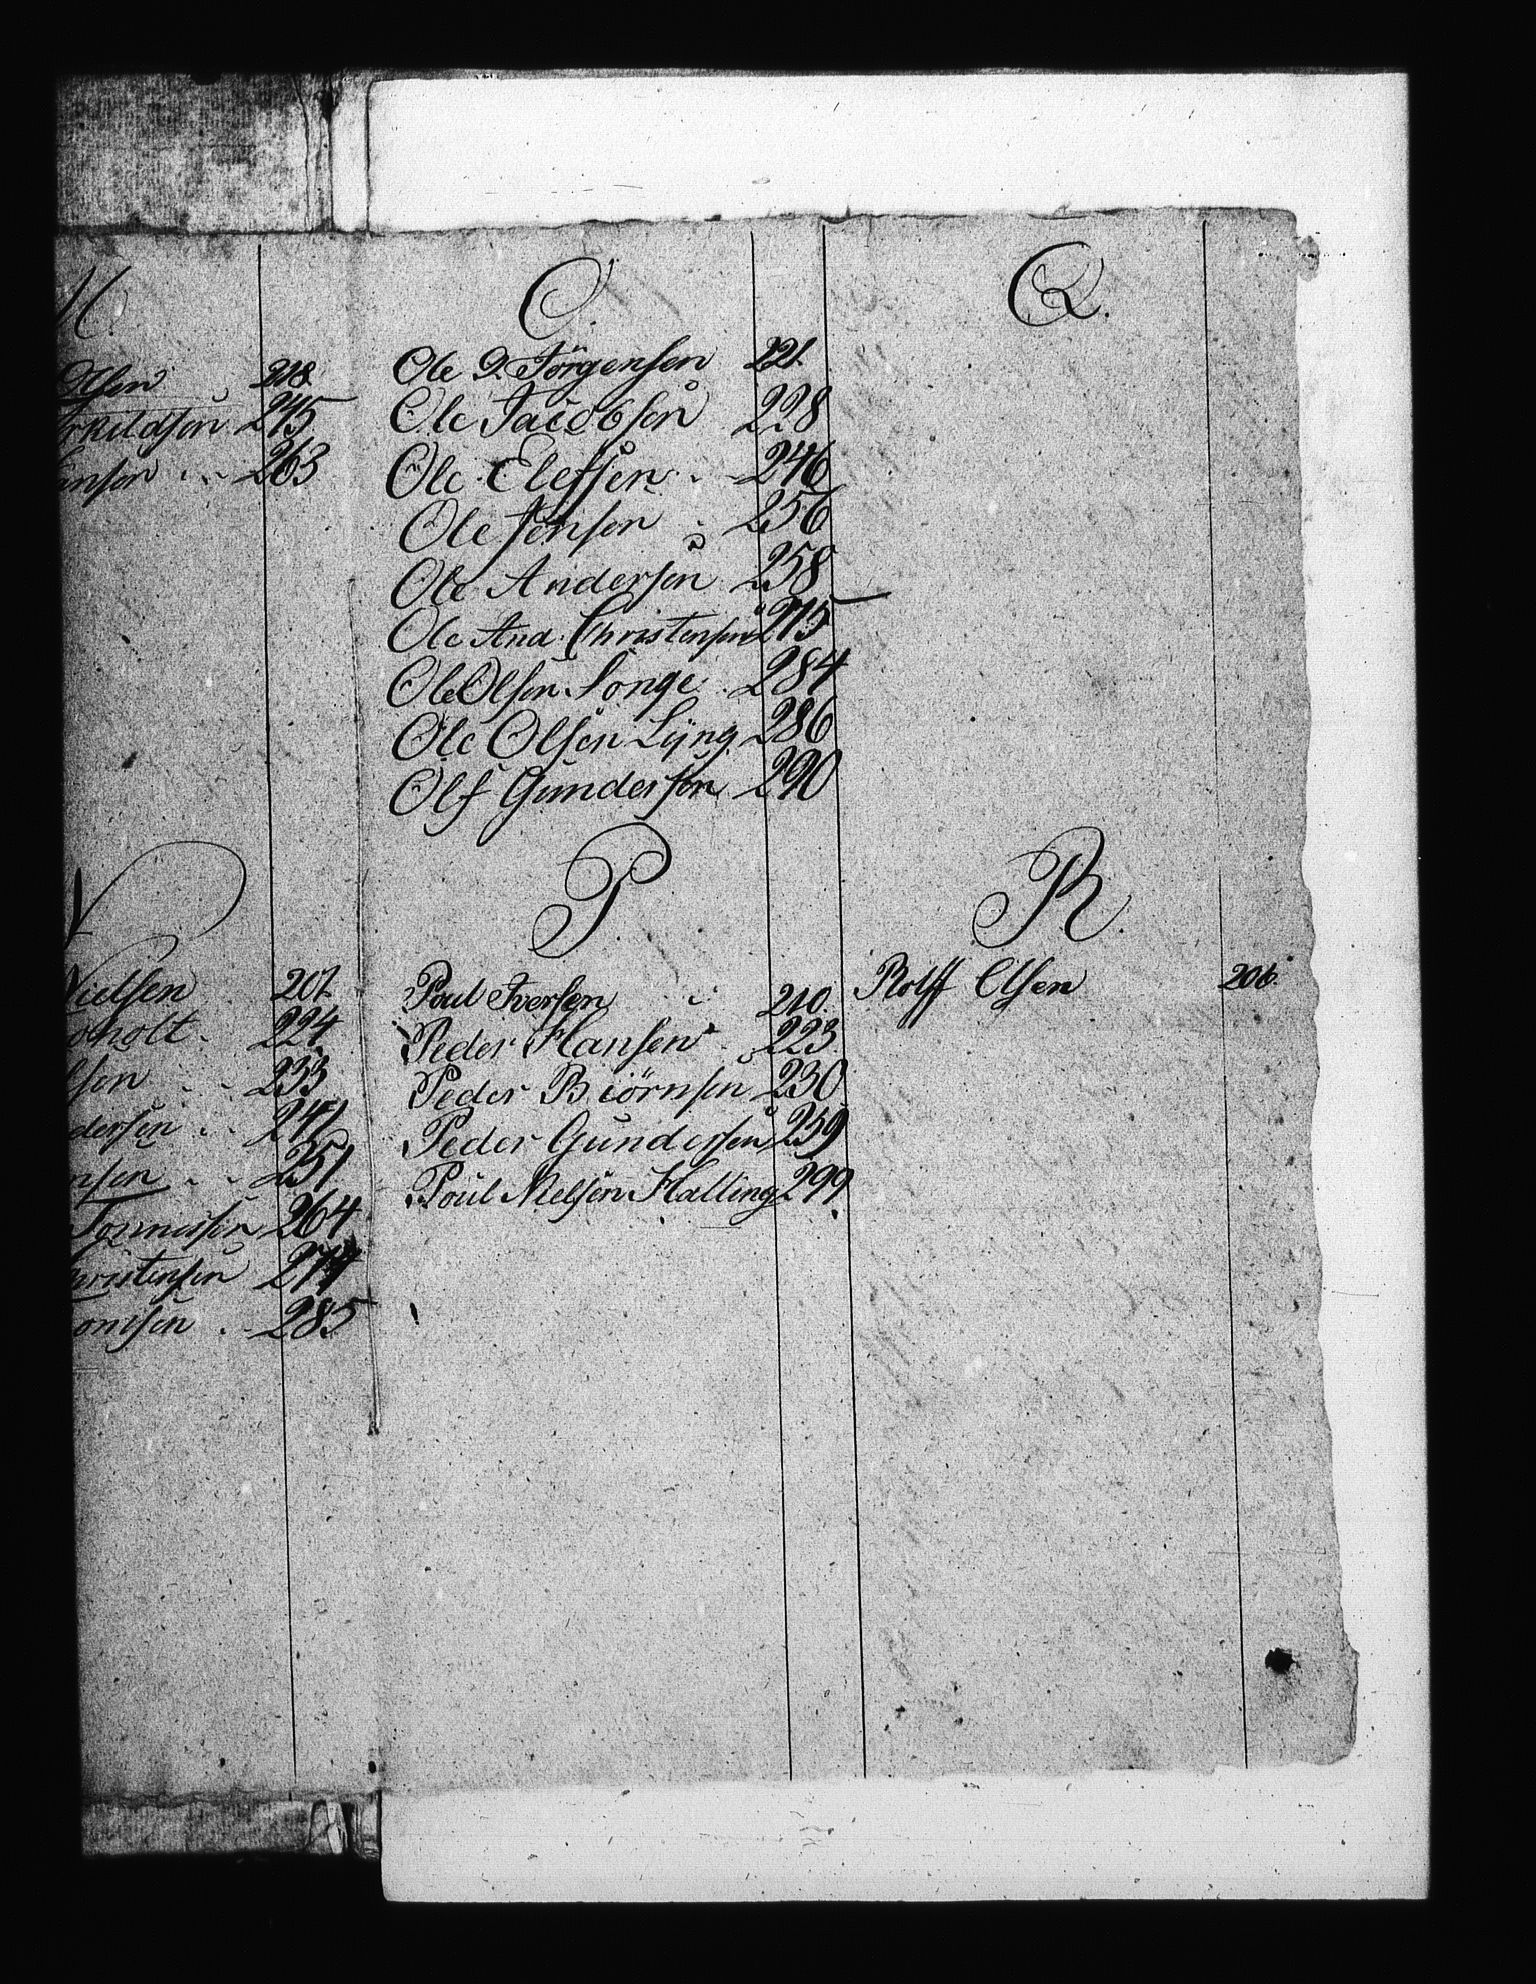 M.
Olsen 218.
erkildsen 245
ansen .. 263
N
Nielsen 207.
oholt. 224
lsen .. 233
dersen .. 247
nsen .. 251
Tonnessen 264
hristensen 274
onisen . 285
O.
Ole D. Jörgensen 221.
Ole Jacobsen 228
Ole Elefsen . 246
Ole Jensen . 256
Ole Andersen 258
Ole And. Christensen 275
Ole Olsen Songe . 284
Ole Olsen Lÿng 286
Olf Gundersen 290
P.
Poul Iversen 210.
Peder Hansen . 223
Peder Biörnsen 230
Peder Gundersen 259
Poul Nielsen Halling 299
Q.
R.
Rolff Olsen 206.